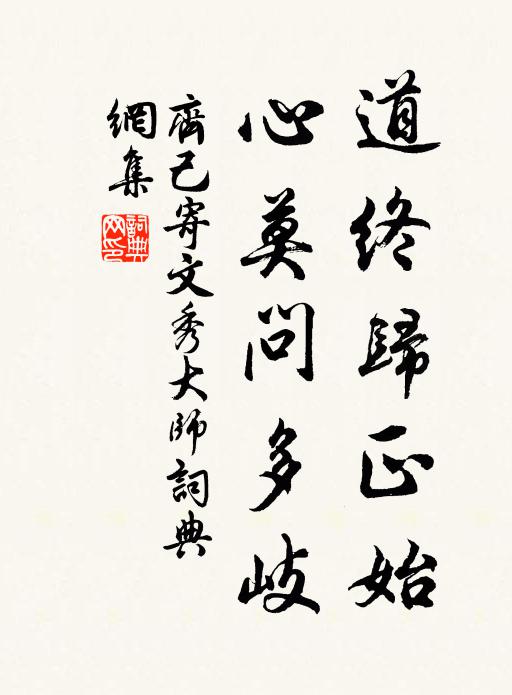 道終歸正始
心莫問多岐
齊己寄文秀大師詞典
網集
詞典網印